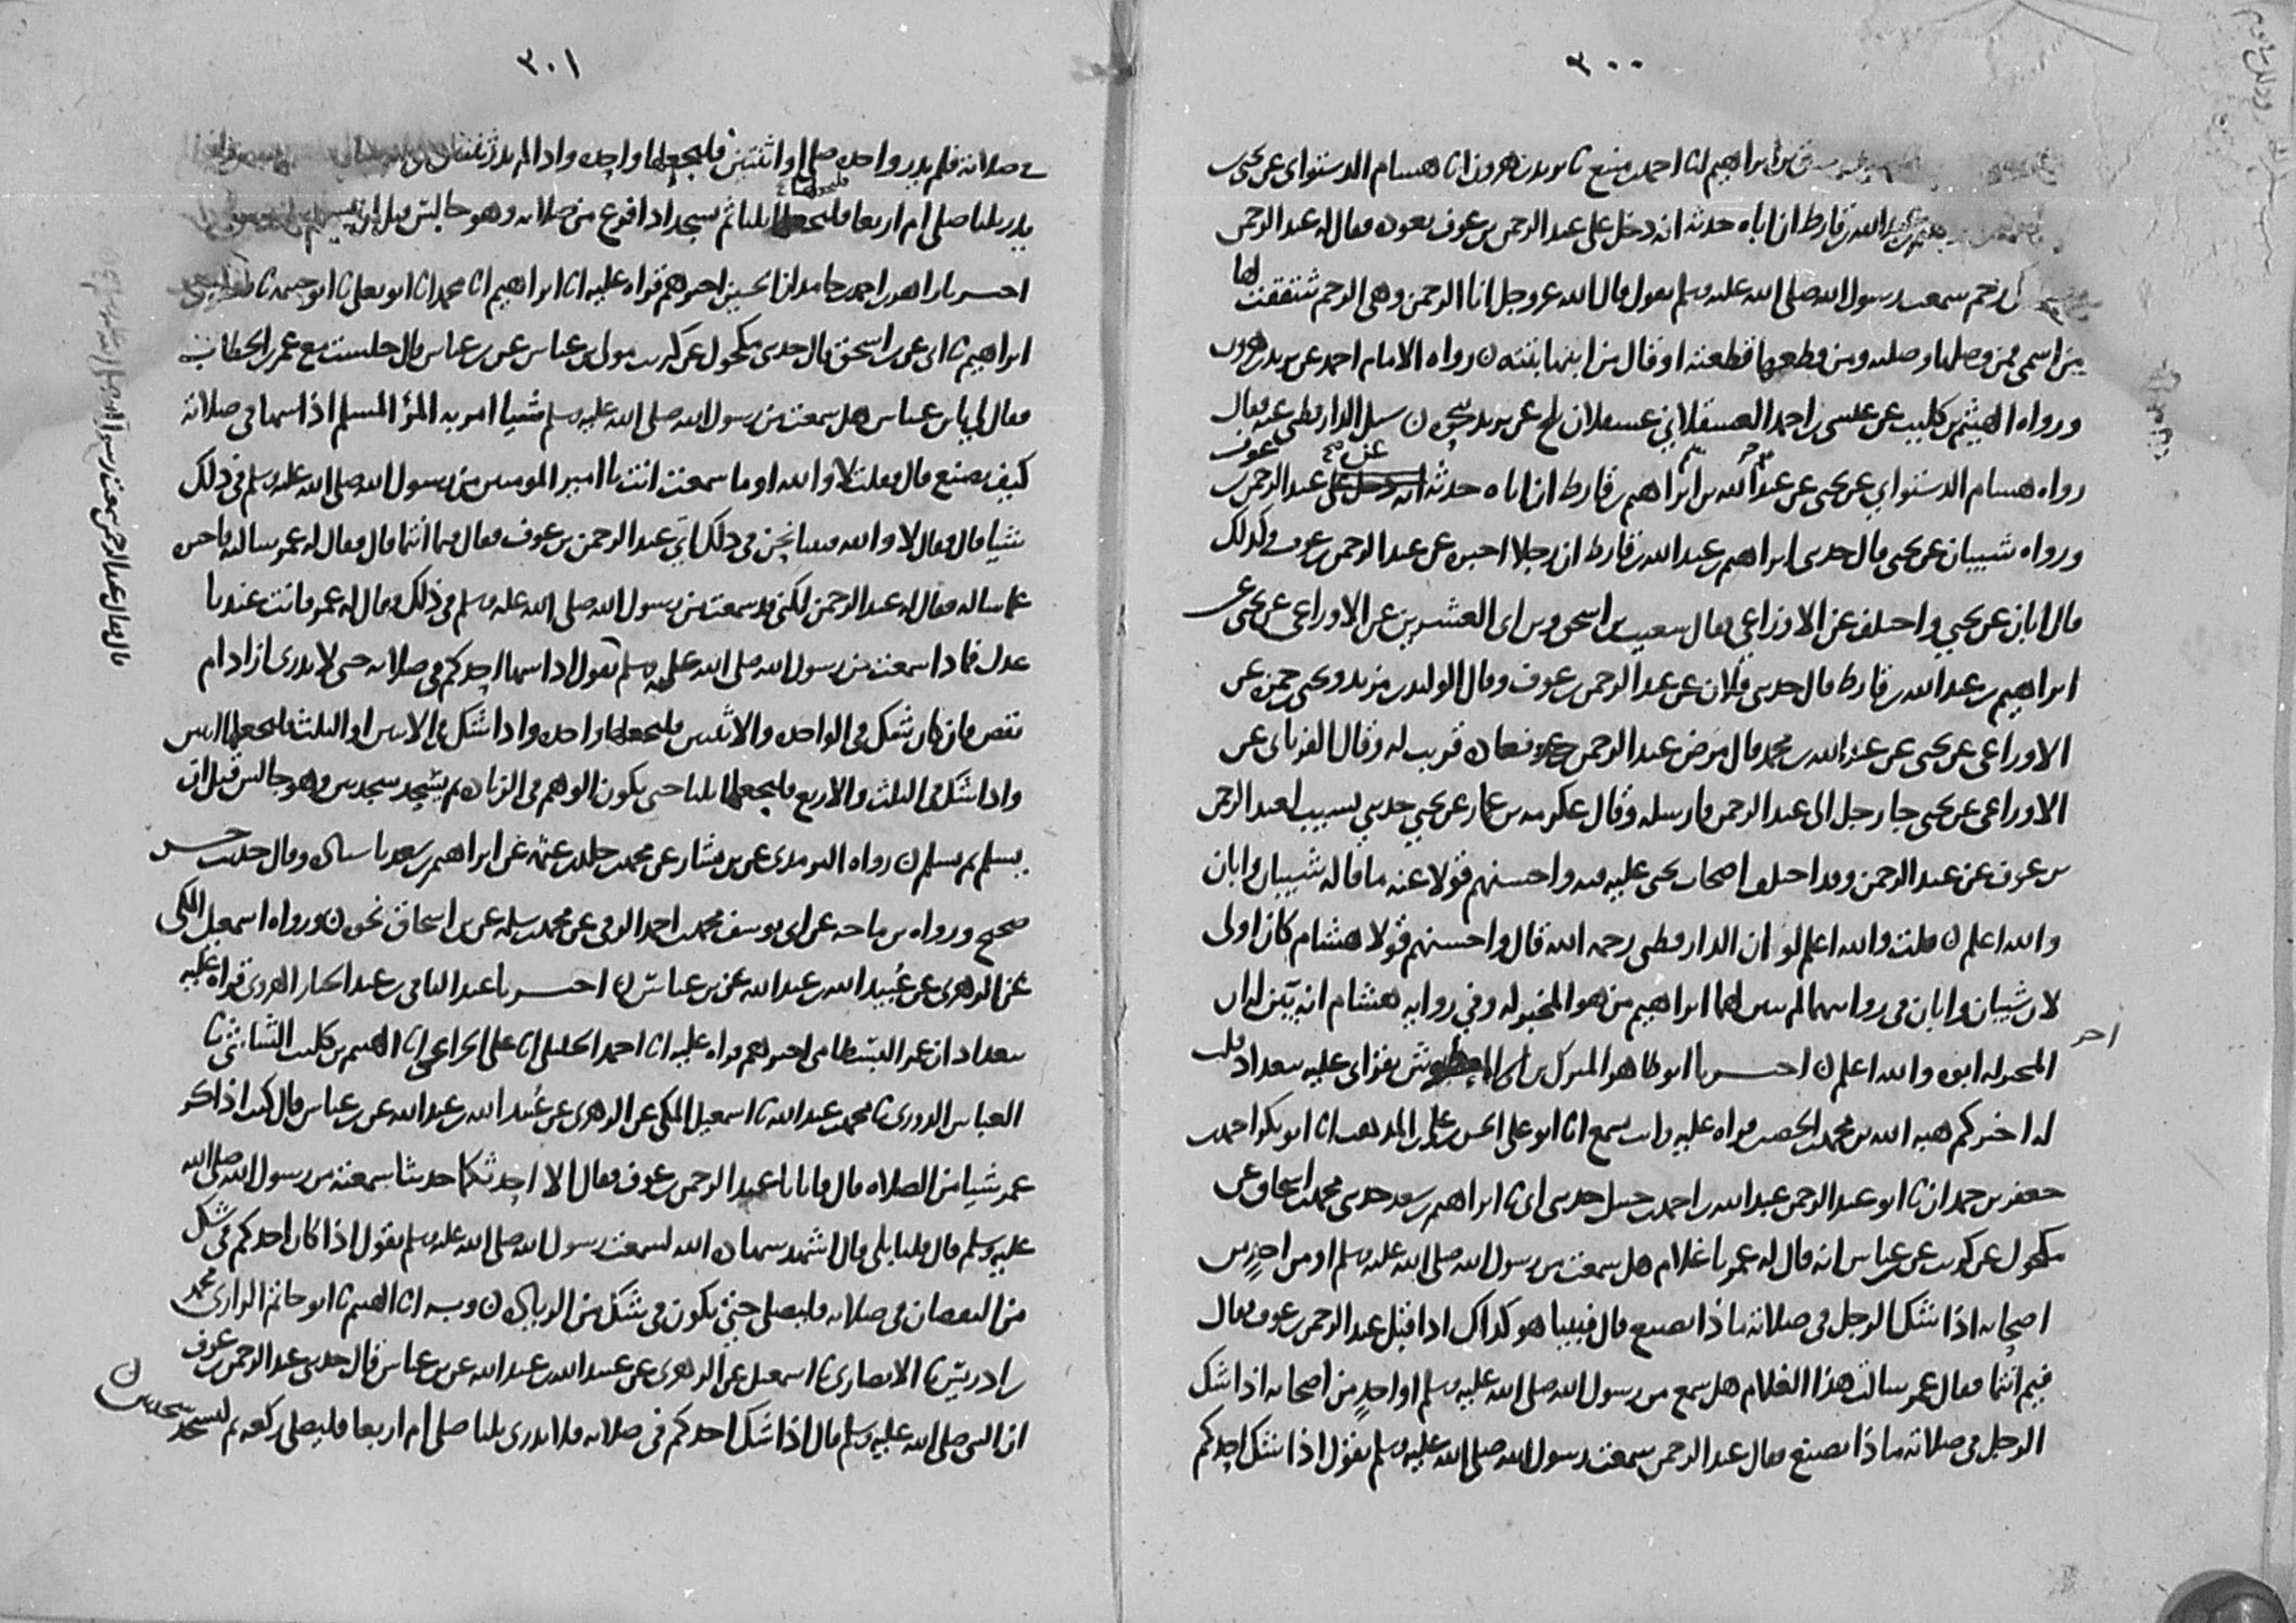 ٣٠٠
بن ابراهيم انا احمد بن منيع نا يزيد بن هرون انا هشام الدستواي عن يحيى بن
عبد الله بن قارظ ان اباه حدثه انه دخل على عبد الرحمن بن عوف يعوده فقال له عبد الرحمن
رحم سمعت رسول الله صلى الله عليه وسلم يقول قال الله عز وجل انا الرحمن وهي الرحم شققت لها
من اسمي فمن وصلها وصلته ومن قطعها قطعته او قال من ابتها ابتته ن رواه الامام احمد عن يزيد بن هرون
ورواه الهيثم بن كليب عن عيسى بن احمد العسقلاني عسقلان بلخ عن يزيد بنحوه ن سيل الدارقطني عنه فقال
رواه هشام الدستواي عن يحيى عن عبد الله بن ابراهيم بن قارظ ان اباه حدثه عن عبد الرحمن بن عوف
ورواه شيبان عن يحيى قال حدثني ابراهيم بن عبد الله بن قارظ ان رجلا اخبره عن عبد الرحمن بن عوف وكذلك
قال ابان عن يحيى واختلف عن الاوزاعي فقال شعيب بن اسحق وبن ابي العشرين عن الاوزاعي عن يحيى عن
ابراهيم بن عبد الله بن قارظ قال حدثني فلان عن عبد الرحمن بن عوف وقال الوليد بن مزيد ويحيى بن حمزة عن
الاوزاعي عن يحيى عن عبد الله بن محمد قال مرض عبد الرحمن بن عوف فعاده قريب له وقال الفريابي عن
الاوزاعي عن يحيى جا رجل الى عبد الرحمن فارسله وقال عكرمه بن عمار عن يحيى حدثني نسيب لعبد الرحمن
بن عوف عن عبد الرحمن وقد اختلف اصحاب يحيى عليه فيه واحسنهم قولا عنه ما قاله شيبان وابان
والله اعلم ن قلت والله اعلم لو ان الدارقطني رحمه الله قال واحسنهم قولا هشام كان اولى
لان شيبان وابان في روايتهما لم يبين لهما ابراهيم من هو المخبر له وفي رواية هشام انه بين له ان
المخبر له ابوه والله اعلم ن اخبرنا ابو طاهر المبارك بن ابي المعالي بقراتي عليه ببغداد قلت
له اخبركم هبة الله بن محمد بن الحصين قراه عليه وانت تسمع انا ابو علي الحسن بن علي بن المذهب انا ابو بكر احمد بن
جعفر بن حمدان نا ابو عبد الرحمن عبد الله بن احمد بن حنبل حدثني ابي نا ابراهيم بن سعد حدثني محمد بن اسحاق عن
مكحول عن كريب عن بن عباس انه قال له عمر يا غلام هل سمعت من رسول الله صلى الله عليه وسلم او من احد من
اصحابه اذا شك الرجل في صلاته ماذا يصنع قال فبينا هو كذاك اذ اقبل عبد الرحمن بن عوف فقال
فيم انتما فقال عمر سالت هذا الغلام هل سمع من رسول الله صلى الله عليه وسلم او احد من اصحابه اذا شك
الرجل في صلاته ماذا يصنع فقال عبد الرحمن سمعت رسول الله صلى الله عليه وسلم يقول اذا شك احدكم
٣٠١
في صلاته فلم يدر واحده صلى او اثنتين فليجعلها واحده واذا لم يدر ثنتين
يدر ثلثا صلى ام اربعا فليجعلها ثلثا ثم يسجد اذا فرغ من صلاته وهو جالس قبل ان يسلم
اخبرنا زاهر بن احمد بن حامد ان الحسين اخبرهم قراه عليه انا ابراهيم انا محمد انا ابو يعلى نا ابو خيثمه نا
ابراهيم نا ابي عن بن اسحق قال حدثني مكحول عن كريب مولى بن عباس عن بن عباس قال جلست مع عمر بن الخطاب
فقال لي يا بن عباس هل سمعت من رسول الله صلى الله عليه وسلم شيا امر به المرؤ المسلم اذا سها في صلاته
كيف يصنع قال فقلت لا والله او ما سمعت انت يا امير المومنين من رسول الله صلى الله عليه وسلم في ذلك
شيا قال فقال لا والله فبينا نحن في ذلك اتى عبد الرحمن بن عوف فقال فيما انتما قال فقال له عمر سالته فاخبره
عما ساله فقال له عبد الرحمن لكني قد سمعت من رسول الله صلى الله عليه وسلم في ذلك فقال له عمر فانت عندنا
عدل فماذا سمعت من رسول الله صلى الله عليه وسلم يقول اذا سها احدكم في صلاته حتى لا يدري ازاد ام
نقص فان كان شك في الواحده والاثنتين فليجعلها واحده واذا شك في الاثنتين او الثلث فليجعلها اثنتين
واذا شك في الثلث والاربع فليجعلها ثلثا حتى يكون الوهم في الزياده ثم يسجد سجدتين وهو جالس قبل ان
يسلم ثم يسلم ن رواه الترمذي عن بن بشار عن محمد بن خالد بن عثمه عن ابراهيم بن سعد وقال حديث حسن
صحيح ورواه بن ماجه عن ابي يوسف محمد بن احمد الرقي عن محمد بن سلمه عن بن اسحاق نحوه ن ورواه اسمعيل المكي
عن الزهري عن عبيد الله بن عبد الله عن بن عباس ن اخبرنا عبد الباقي بن عبد الجبار الهروي قراه عليه
ببغداد ان عمر البسطامي اخبرهم قراه عليه انا احمد الخليلي انا علي الخزاعي انا الهيثم بن كليب الشاشي نا
العباس الدوري نا محمد بن عبد الله نا اسمعيل المكي عن الزهري عن عبيد الله بن عبد الله عن بن عباس قال كنت اذاكر
عمر شيا من الصلاه قال فاتانا عبد الرحمن بن عوف فقال الا احدثكما حديثا سمعته من رسول الله صلى الله
عليه وسلم قال قلنا بلى قال اشهد شهاده الله لسمعت رسول الله صلى الله عليه وسلم يقول اذا كان احدكم في شك
من النقصان في صلاته فليصل حتى يكون في شك من الزياده ن وبه انا الهيثم نا ابو حاتم الرازي محمد
بن ادريس نا الانصاري نا اسمعيل عن الزهري عن عبيد الله بن عبد الله عن بن عباس قال حدثني عبد الرحمن بن عوف
ان النبي صلى الله عليه وسلم قال اذا شك احدكم في صلاته فلا يدري ثلثا صلى ام اربعا فليصلي ركعه ثم ليسجد سجدتين ن